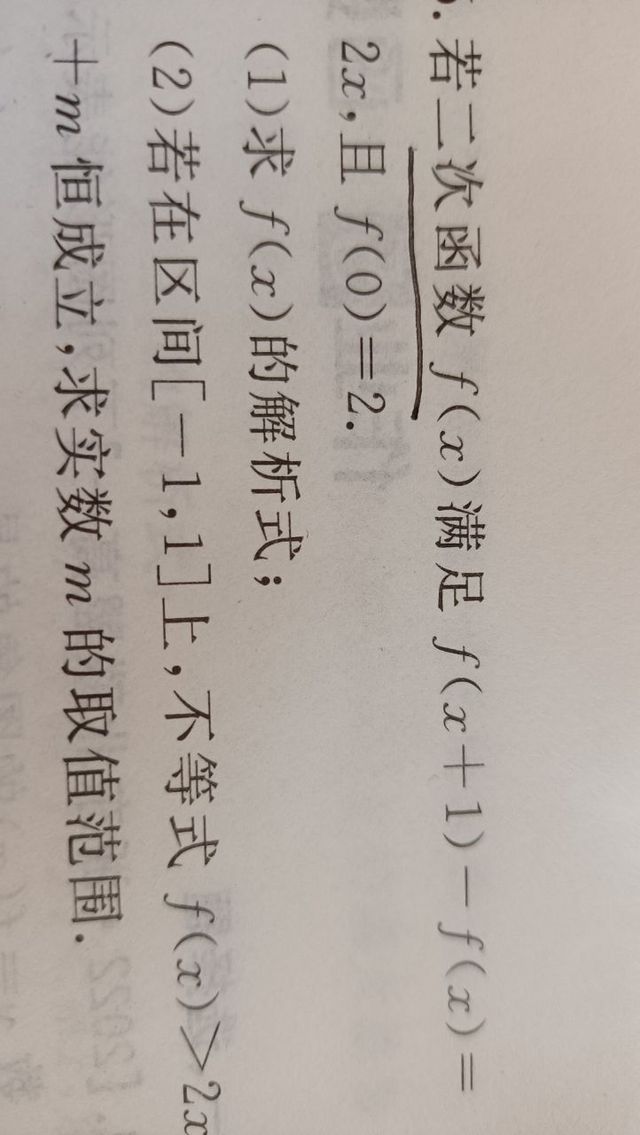 .若二次函数 f(x)满足 f(x+1)-f(x)=
2x,且 f(0)=2.
(1)求 f(x)的解析式;
(2)若在区间[-1,1]上,不等式 f(x)>2x
+m 恒成立,求实数 m 的取值范围.